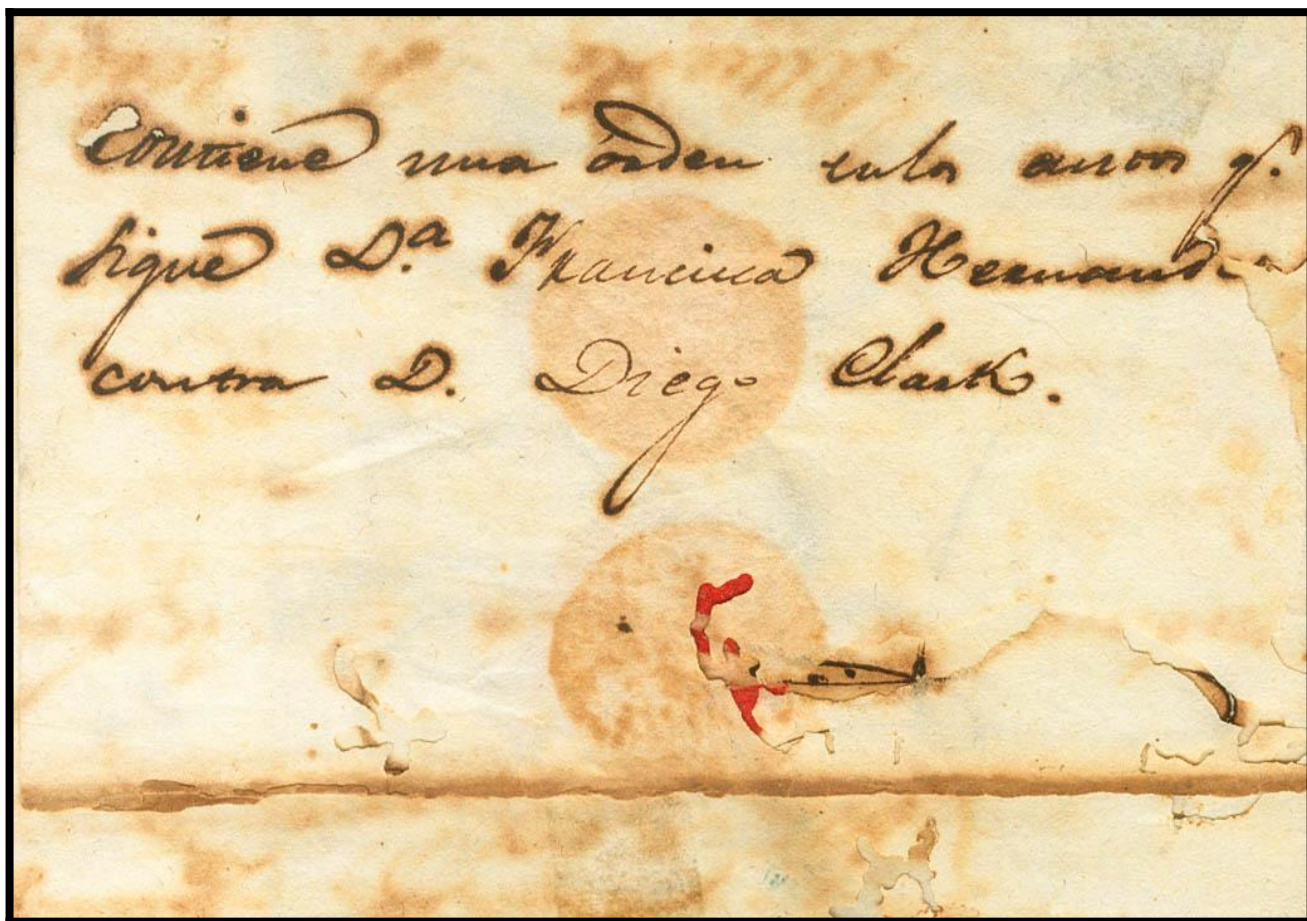 Contiene una órden en los autos q.
sigue D.a Francisca Hernand
contra D. Diego Clark.